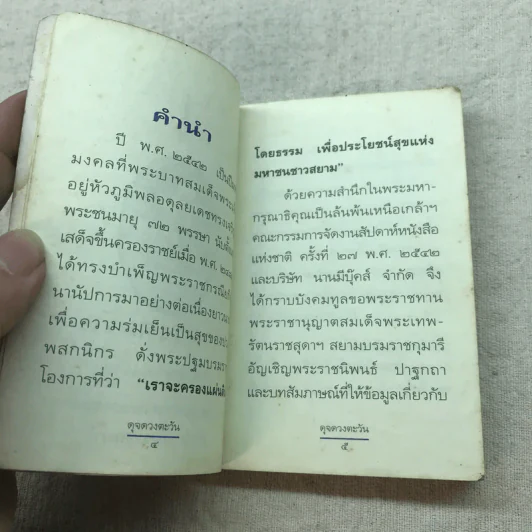 คำนำ
ปี พ.ศ. ๒๕๔๒ เป็น
มงคลที่พระบาทสมเด็จพระ
อยู่หัวภูมิพลอดุลยเดชทรง
พระชนมายุ ๗๒ พรรษา นับ
เสด็จขึ้นครองราชย์เมื่อ พ.ศ.
ได้ทรงบำเพ็ญพระราชกรณีย
นานัปการมาอย่างต่อเนื่องยาว
เพื่อความร่มเย็นเป็นสุขของ
พสกนิกร ดั่งพระปฐมบรม
โองการที่ว่า “เราจะครองแผ่น
ดุจดวงตะวัน
๔
โดยธรรม เพื่อประโยชน์สุขแห่ง
มหาชนชาวสยาม”
ด้วยความสำนึกในพระมหา-
กรุณาธิคุณเป็นล้นพ้นเหนือเกล้าฯ
คณะกรรมการจัดงานสัปดาห์หนังสือ
แห่งชาติ ครั้งที่ ๒๗ พ.ศ. ๒๕๔๒
และบริษัท นานมีบุ๊คส์ จำกัด จึง
ได้กราบบังคมทูลขอพระราชทาน
พระราชานุญาตสมเด็จพระเทพ-
รัตนราชสุดาฯ สยามบรมราชกุมารี
อัญเชิญพระราชนิพนธ์ ปาฐกถา
และบทสัมภาษณ์ที่ให้ข้อมูลเกี่ยวกับ
ดุจดวงตะวัน
๕